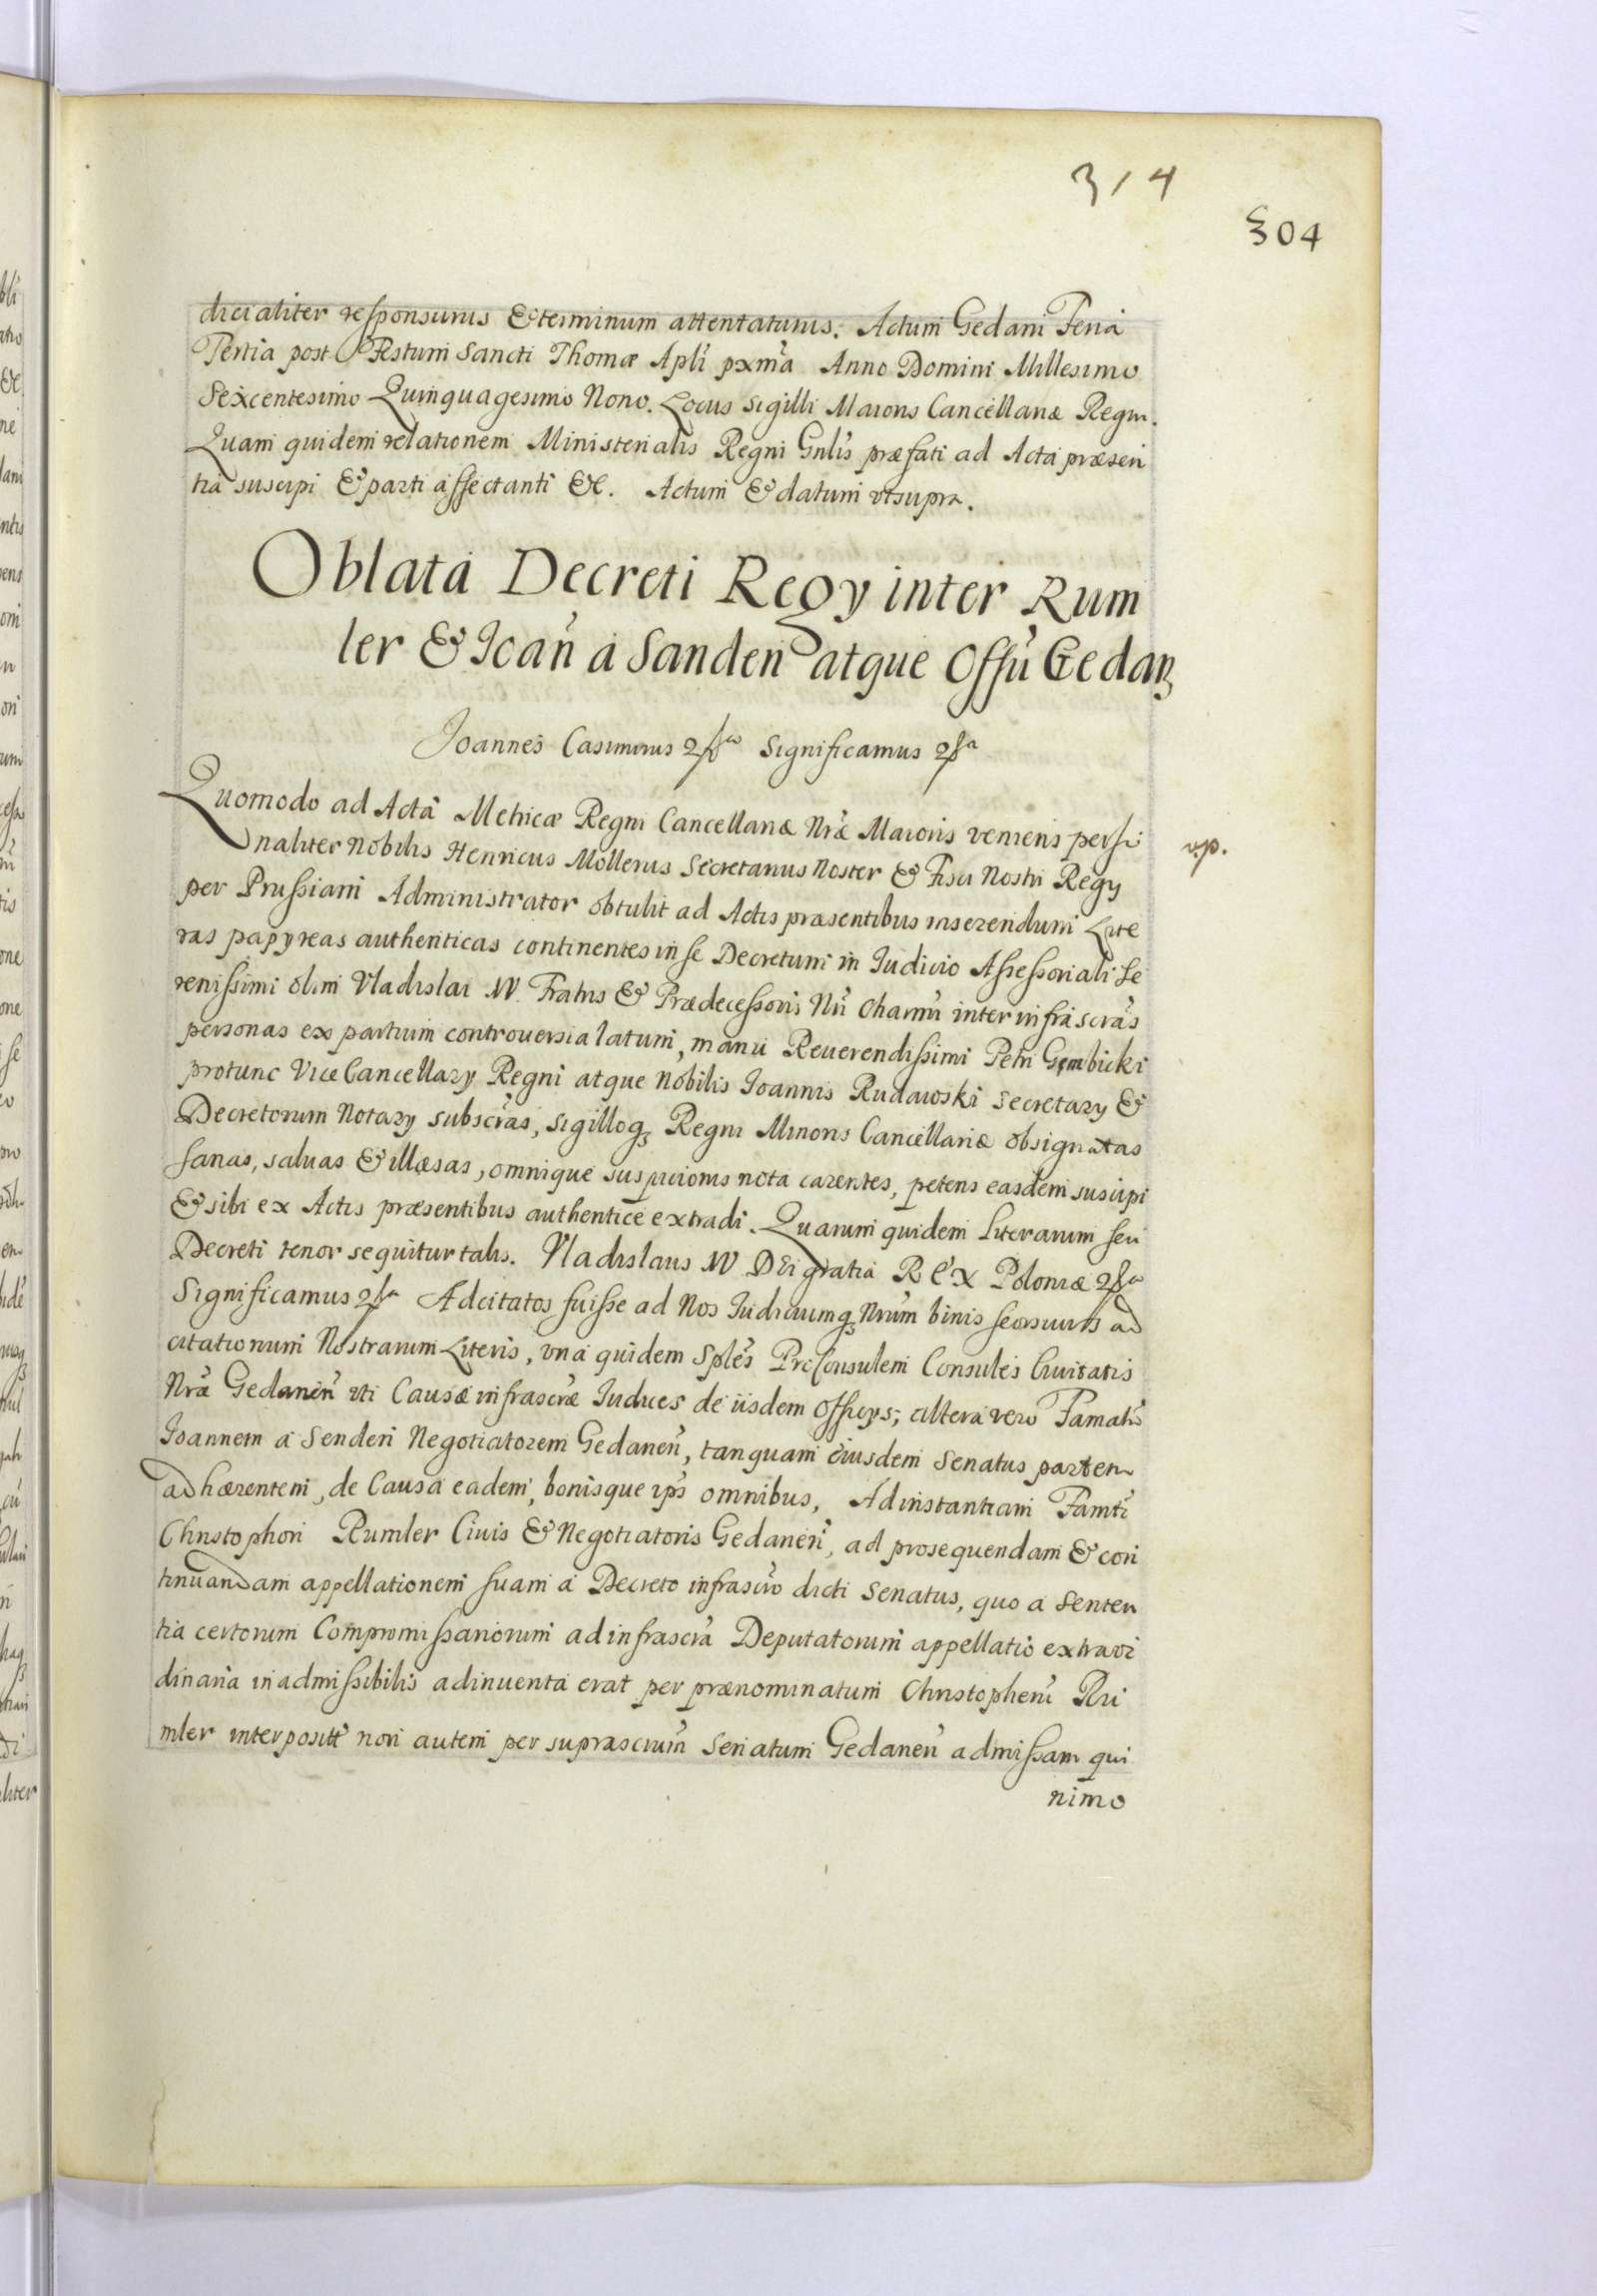 314
304
dicialiter responsurus & terminum attentaturus. Actum Gedani Feria
Tertia post Festum Sancti Thomæ Apli pxma Anno Domini Millesimo
Sexcentesimo Quinquagesimo Nono. Locus sigilli Maioris Cancellariæ Regni.
Quam quidem relationem Ministerialis Regni Gnlis præfati ad Acta præsen
tia suscipi & parti affectanti &c. Actum & datum vt supra.
Oblata Decreti Regy inter Rum
ler & Ioan̄ a Sanden atque Offū Gedan
Joannes Casimirus Significamus
Quomodo ad Acta Metricæ Regni Cancellariæ Nræ Maioris veniens perso
naliter Nobilis Henricus Mollerus Secretarius Noster & Fisci Nostri Regy
per Prussiam Administrator obtulit ad Actis præsentibus inserendum Lite
ras papyreas authenticas continentes in se Decretum in Iudicio Assessoriali Se
renissimi olim Vladislai IV. Fratris & Prædecessoris Nri Charmi inter infrascras
personas ex partium controuersia latum, manu Reuerendissimi Petri Gembicki
protunc Vice Cancellary Regni atque Nobilis Joannis Rudawski Secretary &
Decretorum Notary subscras, sigilloq Regni Minoris Cancellariæ obsignatas
sanas, saluas & illæsas, omnique suspicionis nota carentes, petens easdem suscipi
& sibi ex Actis præsentibus authentice extradi. Quarum quidem Literarum seu
Decreti tenor sequitur talis. Vladislaus IV DEi gratia REX Poloniæ
Significamus Adcitatos fuisse ad Nos Iudiciumq Nrum binis seorsiuis ad
citationum Nostrarum Literis, vna quidem Sples ProConsulem Consules Ciuitatis
Nræ Gedanen̄ vti Causæ infrascræ Iudices de iisdem Officys; altera vero Famatū
Joannem a Senden Negotiatorem Gedanen̄, tanquam eiusdem Senatus partem
adhærentem, de Causa eadem, bonisque ips omnibus, Ad instantiam Famti
Christophori Rumler Ciuis & Negotiatoris Gedanen̄, ad prosequendam & con
tinuandam appellationem suam a Decreto infrascro dicti Senatus, quo a Senten
tia certorum Compromissariorum ad infrascra Deputatorum appellatio extraor
dinaria inadmissibilis adinuenta erat per prænominatum Christopherū Ru
mler interposita non autem per suprascrum Senatum Gedanen̄ admissam qui
nimo